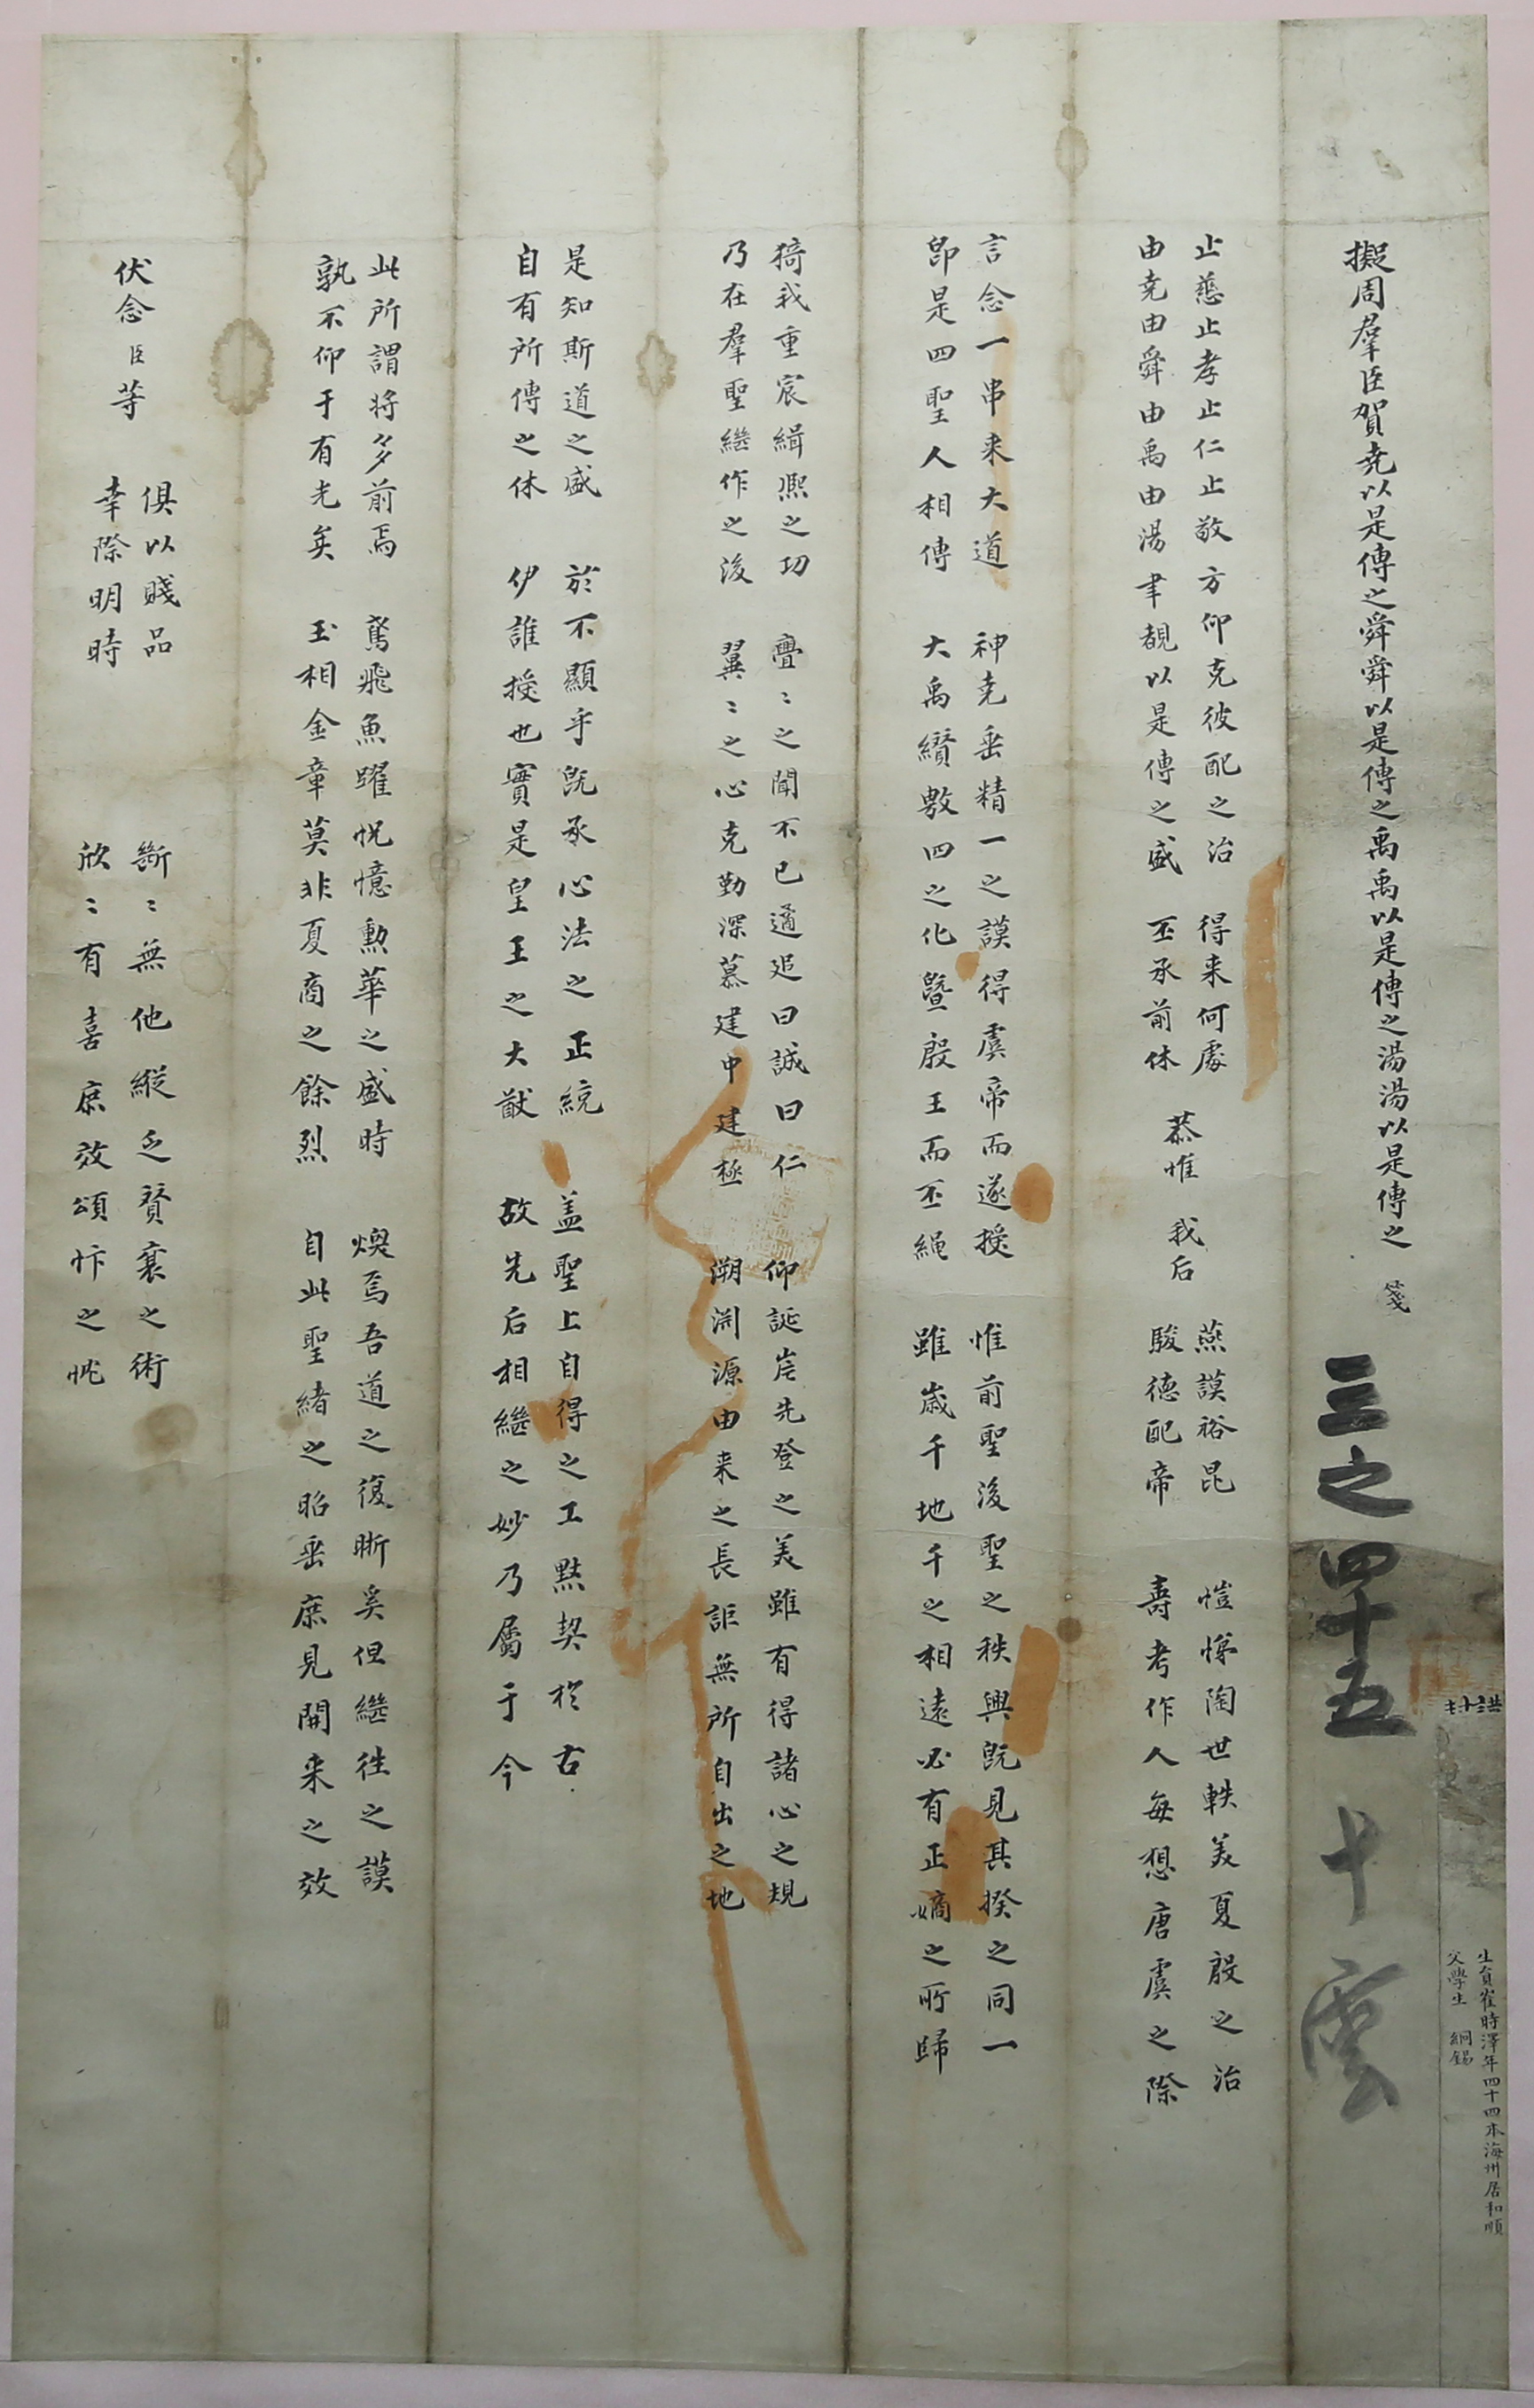 生員崔時澤年四十四本海州居和順
父學生 絅錫
擬周羣臣賀堯以是傳之舜舜以是傳之禹禹以是傳之湯湯以是傳之 箋
三之四十五 十雲
止慈止孝止仁止敬方仰克彼配之治 得来何處
由堯由舜由禹由湯聿覩以是傳之盛 丕承前休
恭惟 我后
燕謨裕昆 愷悌陶世軼美夏殷之治
駿德配帝 壽考作人每想唐虞之際
言念一串来大道 神堯垂精一之謨得虞帝而遂授 惟前聖後聖之秩興旣見其揆之同一
卽是四聖人相傳 大禹纘敷四之化曁殷王而丕繩 雖歲千地千之相遠必有正嫡之所歸
猗我重宸緝熙之功 亹〻之聞不已遹追曰誠曰仁 仰誕岸先登之美雖有得諸心之規
乃在羣聖繼作之後 翼〻之心克勤深慕建中建極 溯淵源由来之長詎無所自出之地
是知斯道之盛 於不顯乎旣承心法之正統 盖聖上自得之工黙契於古
自有所傳之休 伊誰授也實是皇王之大猷 故先后相繼之妙乃屬于今
此所謂將多前焉 鳶飛魚躍怳憶勳華之盛時 煥焉吾道之復晣奚但繼徃之謨
孰不仰于有光矣 玉相金章莫非夏商之餘烈 自此聖緖之昭垂庶見開来之效
伏念臣等
俱以賤品 斷〻無他縱乏贊襄之術
幸際明時 欣〻有喜庶效頌忭之忱